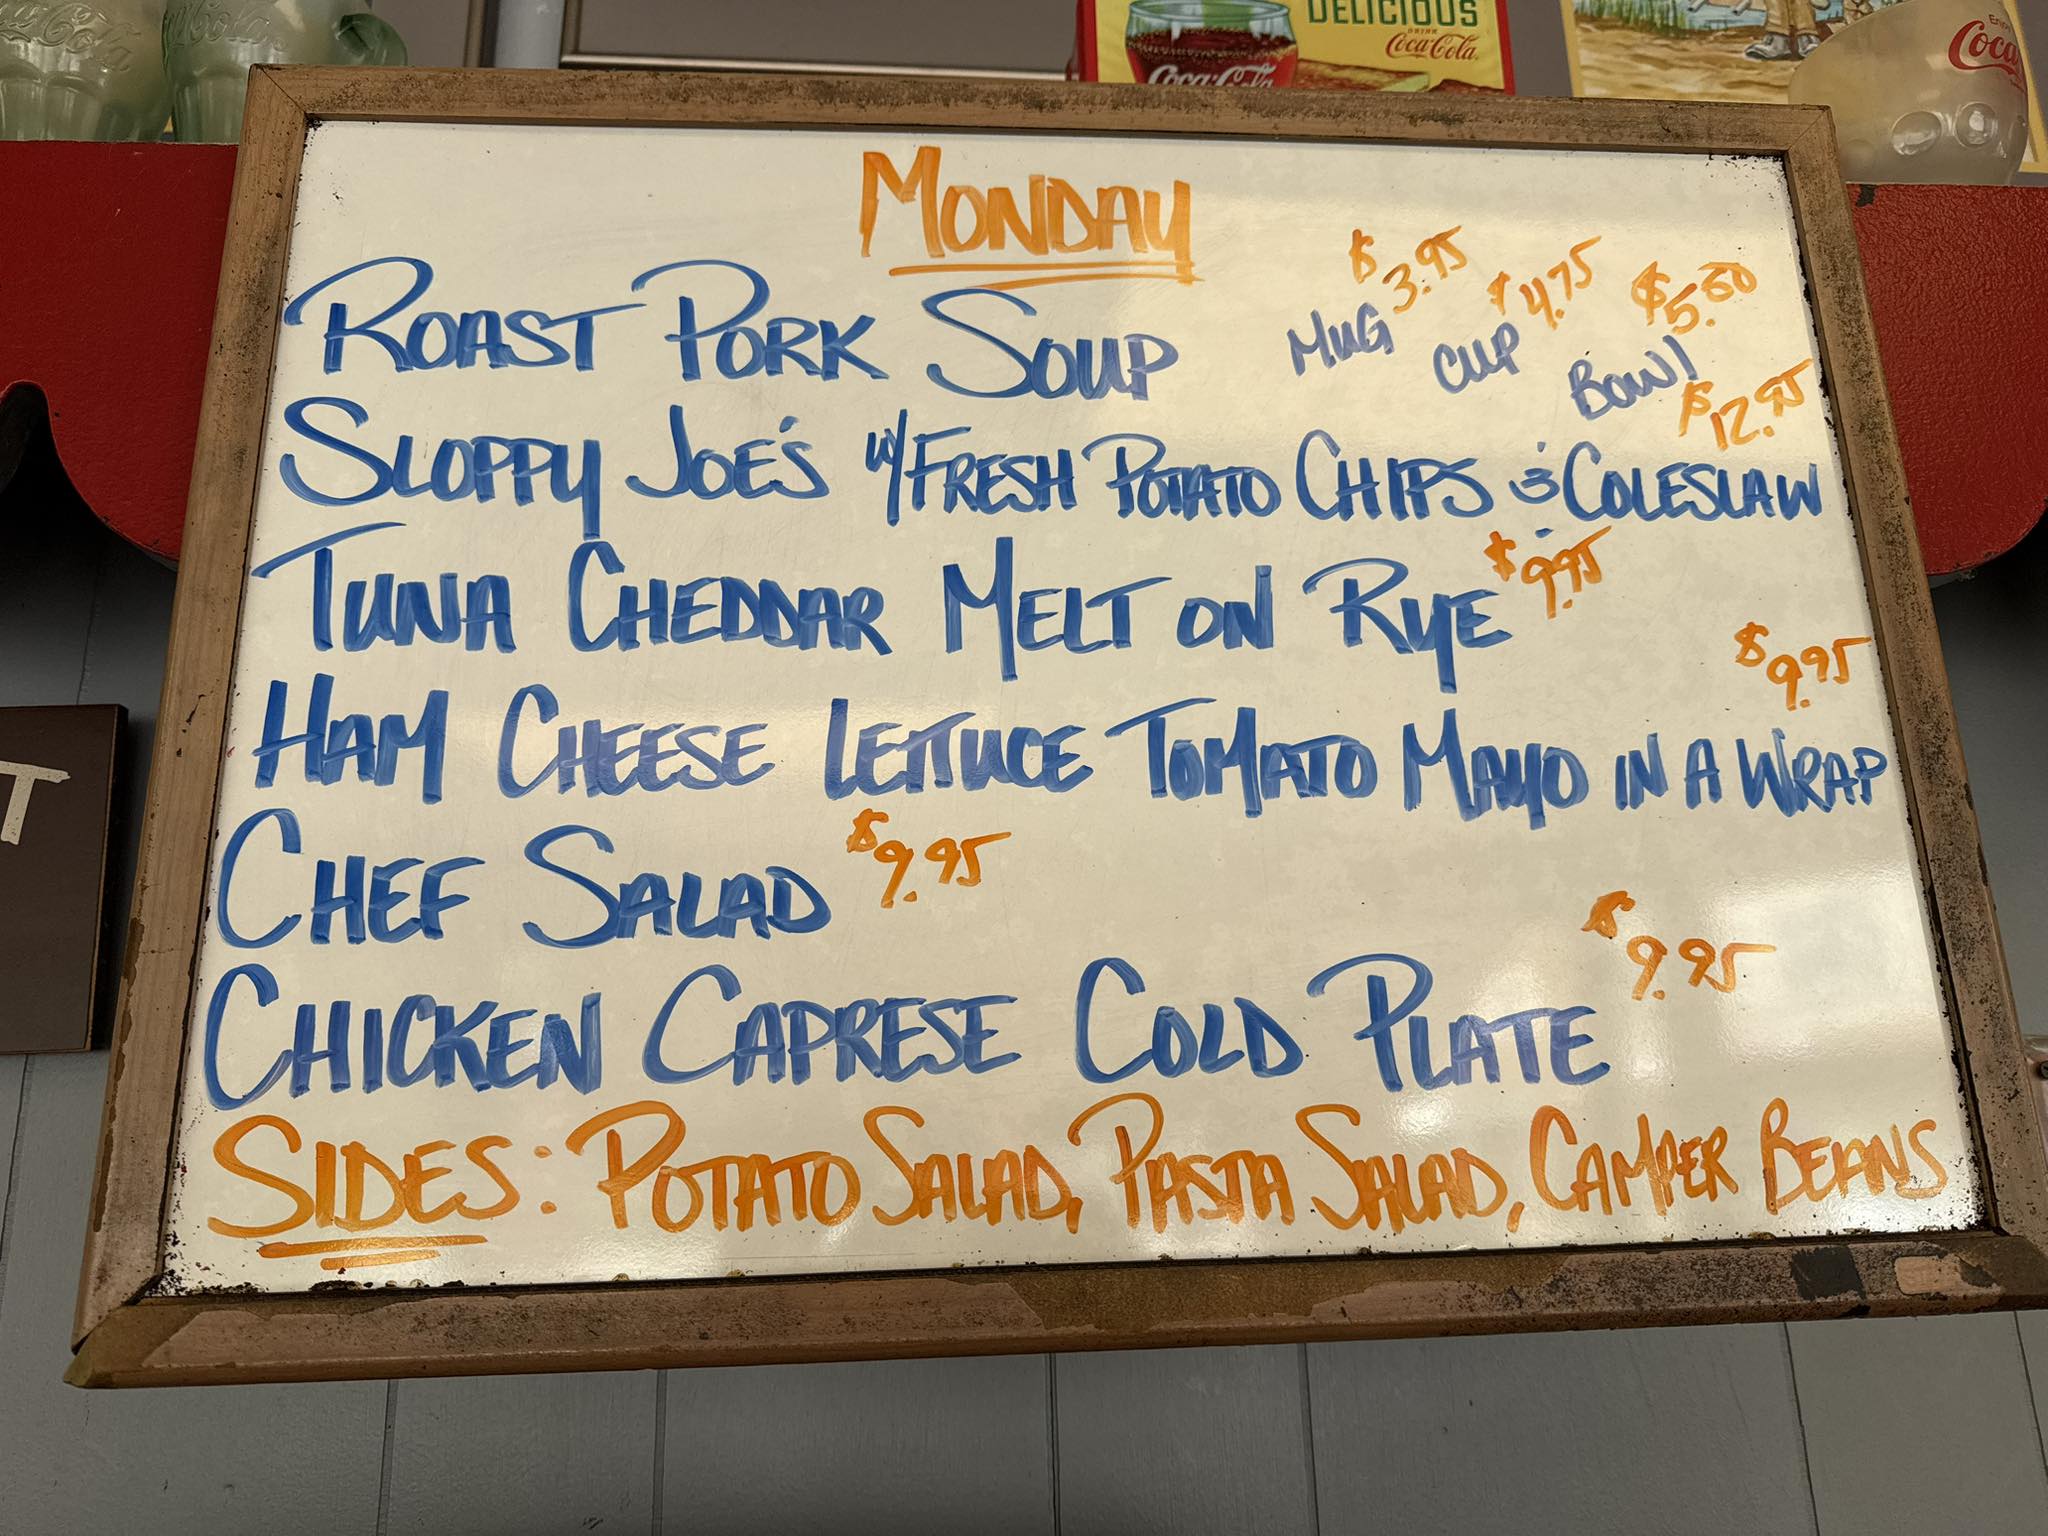 Coca-Cola
Coca-Cola
DELICIOUS
DRINK
Coca-Cola
Coca-Cola
Enjoy
Coca
T
MONDAY
ROAST PORK SOUP MUG $3.95 CUP $4.75 BOWL $5.50
SLOPPY JOE'S W/FRESH POTATO CHIPS & COLESLAW $12.95
TUNA CHEDDAR MELT ON RYE $9.95
HAM CHEESE LETTUCE TOMATO MAYO IN A WRAP $9.95
CHEF SALAD $9.95
CHICKEN CAPRESE COLD PLATE $9.95
SIDES: POTATO SALAD, PASTA SALAD, CAMPER BEANS